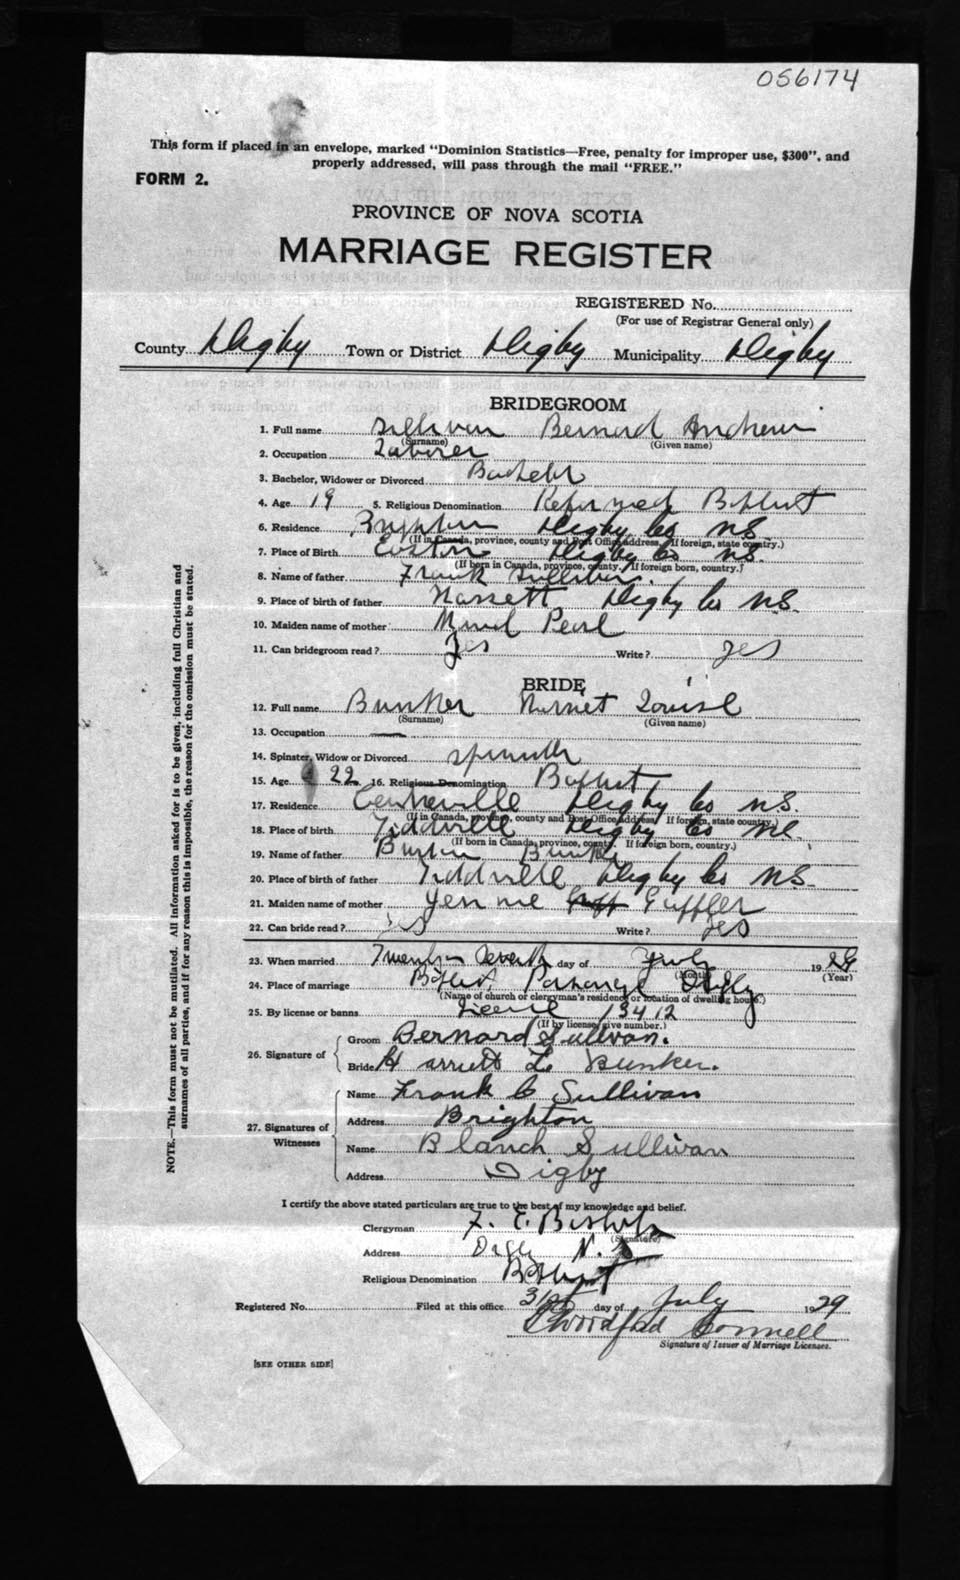 056174
This form if placed in an envelope, marked "Dominion Statistics—Free, penalty for improper use, $300", and
properly addressed, will pass through the mail "FREE."
FORM 2.
PROVINCE OF NOVA SCOTIA
MARRIAGE REGISTER
REGISTERED No.
(For use of Registrar General only)
County Digby Town or District Digby Municipality Digby
BRIDEGROOM
1. Full name Sullivan Bernard Andrew
(Surname) (Given name)
2. Occupation Laborer
3. Bachelor, Widower or Divorced Bachelor
4. Age 19 5. Religious Denomination Reformed Baptist
6. Residence Brighton Digby Co NS
(If in Canada, province, county and Post Office Address. If foreign, state country.)
7. Place of Birth Digby Co NS.
(If born in Canada, province, county. If foreign born, country.)
8. Name of father Frank Sullivan.
9. Place of birth of father Digby Co NS.
10. Maiden name of mother Pearl
11. Can bridegroom read? Yes Write? yes
BRIDE
12. Full name Bunker Harriet Louise
(Surname) (Given name)
13. Occupation —
14. Spinster, Widow or Divorced spinster
15. Age 22 16. Religious Denomination Baptist
17. Residence Centreville Digby Co NS.
(If in Canada, province, county and Post Office Address. If foreign, state country.)
18. Place of birth Tiddville Digby Co NS.
(If born in Canada, province, county. If foreign born, country.)
19. Name of father Bunker
20. Place of birth of father Tiddville Digby Co NS.
21. Maiden name of mother Jennie Guffler
22. Can bride read? yes Write? yes
23. When married Twenty Seventh day of July 1929
(Month) (Year)
24. Place of marriage Baptist Parsonage Digby
(Name of church or clergyman's residence or location of dwelling house.)
25. By license or banns License 13412
(If by license, give number.)
26. Signature of Groom Bernard Sullivan.
Bride Harriett L. Bunker.
27. Signatures of Witnesses Name Frank C Sullivan
Address Brighton
Name Blanch Sullivan
Address Digby
I certify the above stated particulars are true to the best of my knowledge and belief.
Clergyman F. E. Bishop
(Signature)
Address Digby N.S
Religious Denomination Baptist
Registered No. Filed at this office 31st day of July 1929
Connell
Signature of Issuer of Marriage Licenses.
[SEE OTHER SIDE]
NOTE.—This form must not be mutilated. All information asked for is to be given, including full Christian and
surnames of all parties, and if for any reason this is impossible, the reason for the omission must be stated.